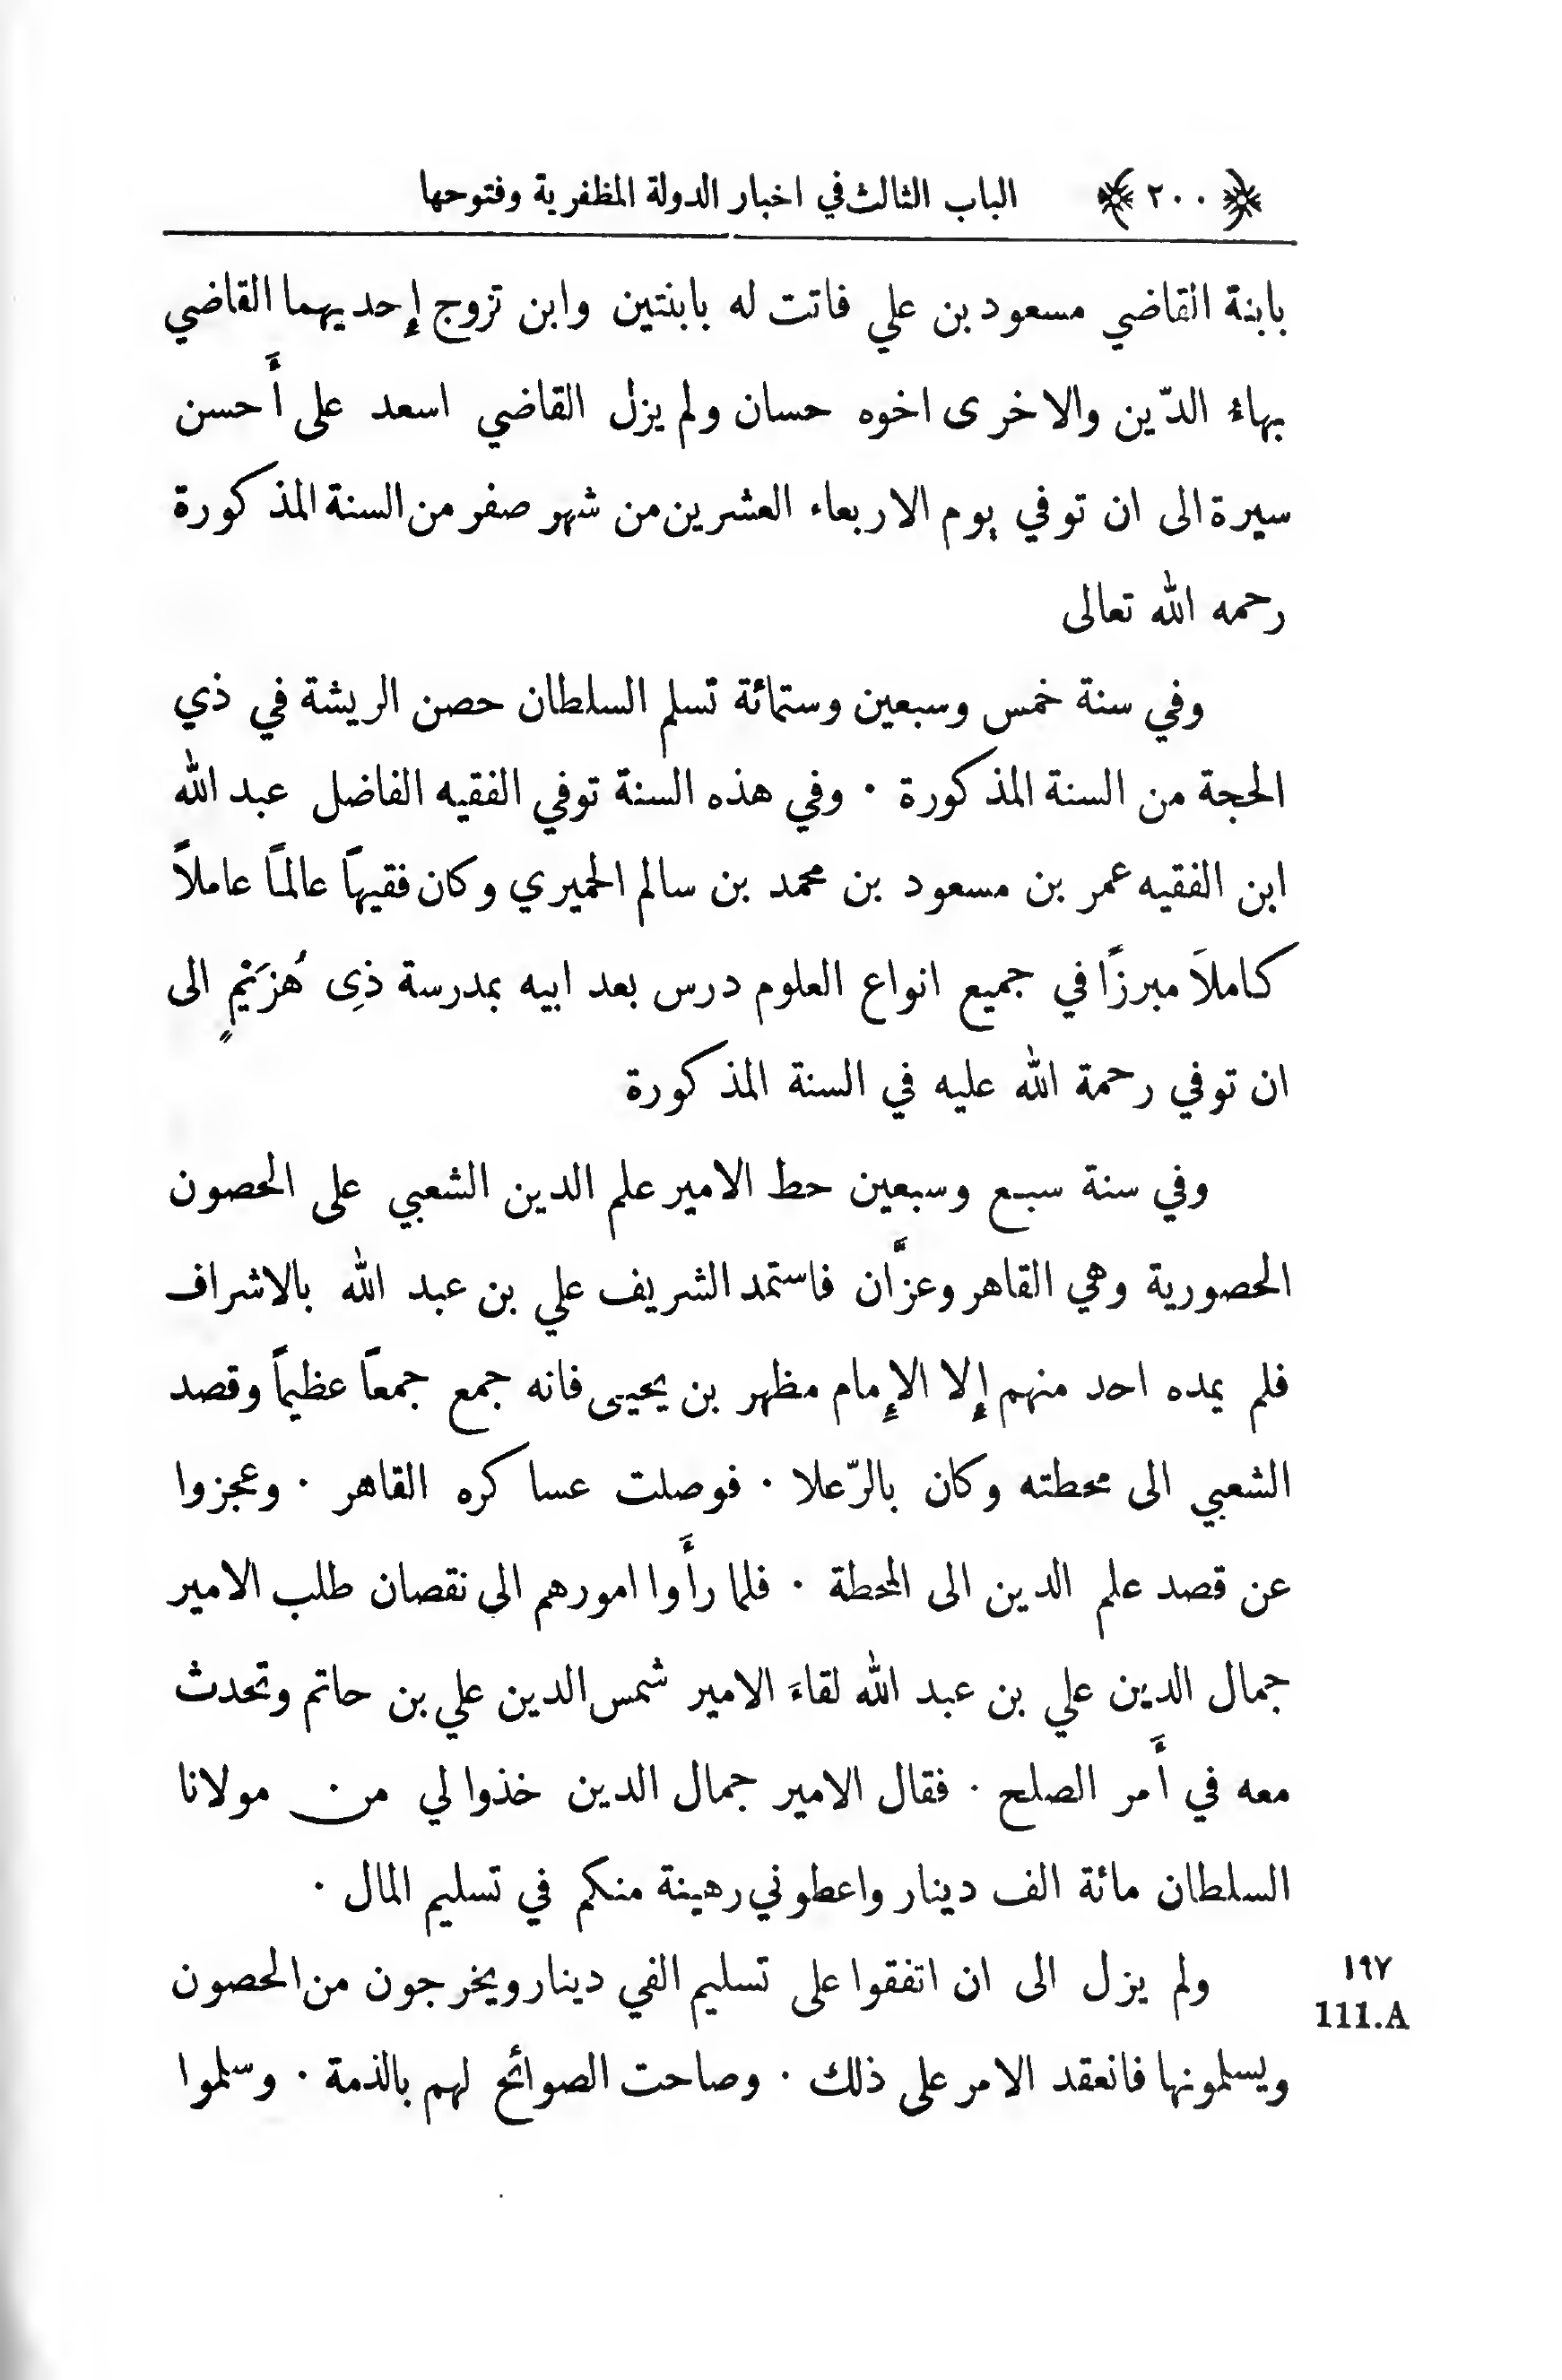 ﴿ ٢٠٠ ﴾ الباب الثالث في اخبار الدولة المظفرية وفتوحها
بابنة القاضي مسعود بن علي فاتت له بابنتين وابن تزوج إحديهما القاضي
بهاءُ الدّين والاخرى اخوه حسان ولم يزل القاضي اسعد على أَحسن
سيرة الى ان توفي يوم الاربعاء العشرين من شهر صفر من السنة المذكورة
رحمه الله تعالى
وفي سنة خمس وسبعين وستمائة تسلم السلطان حصن الريشة في ذي
الحجة من السنة المذكورة ٠ وفي هذه السنة توفي الفقيه الفاضل عبد الله
ابن الفقيه عمر بن مسعود بن محمد بن سالم الحميري وكان فقيهاً عالماً عاملاً
كاملاً مبرزًا في جميع انواع العلوم درس بعد ابيه بمدرسة ذِى هُزَيْمٍ الى
ان توفي رحمة الله عليه في السنة المذكورة
وفي سنة سبع وسبعين حط الامير علم الدين الشعبي على الحصون
الحصورية وهي القاهر وعزَّان فاستمد الشريف علي بن عبد الله بالاشراف
فلم يمده احد منهم إلا الإمام مظهر بن يحيى فانه جمع جمعاً عظيماً وقصد
الشعبي الى محطته وكان بالرّعلا ٠ فوصلت عساكره القاهر ٠ وعجزوا
عن قصد علم الدين الى المحطة ٠ فلما رأَوا امورهم الى نقصان طلب الامير
جمال الدين علي بن عبد الله لقاءَ الامير شمس الدين علي بن حاتم وتحدث
معه في أَمر الصلح ٠ فقال الامير جمال الدين خذوا لي من مولانا
السلطان مائة الف دينار واعطوني رهينة منكم في تسليم المال ٠
ولم يزل الى ان اتفقوا على تسليم الفي دينار ويخرجون من الحصون
١٩٧
111.A
ويسلمونها فانعقد الامر على ذلك ٠ وصاحت الصوائح لهم بالذمة ٠ وسلموا